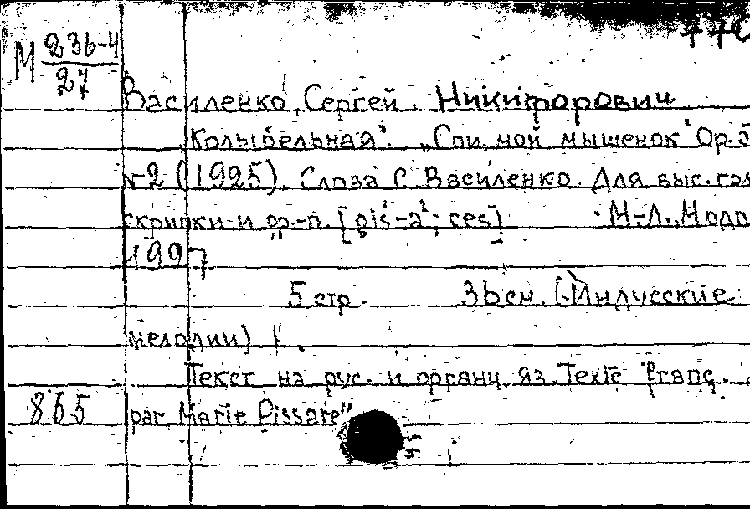 М 236-4
27
Василенко, Сергей Никифорович
"Колыбельная". "Спи, мой мышенок" Ор.
№2 (1925). Слова С. Василенко. Для выс. гол
скрипки и ф-п. [gis¹-a²; ces] М-Л., Модп
1927
5 стр. 36 см. (Индусские
мелодии)
Текст на рус. и франц. яз. Texte franç.
865 par Marie Pissare"